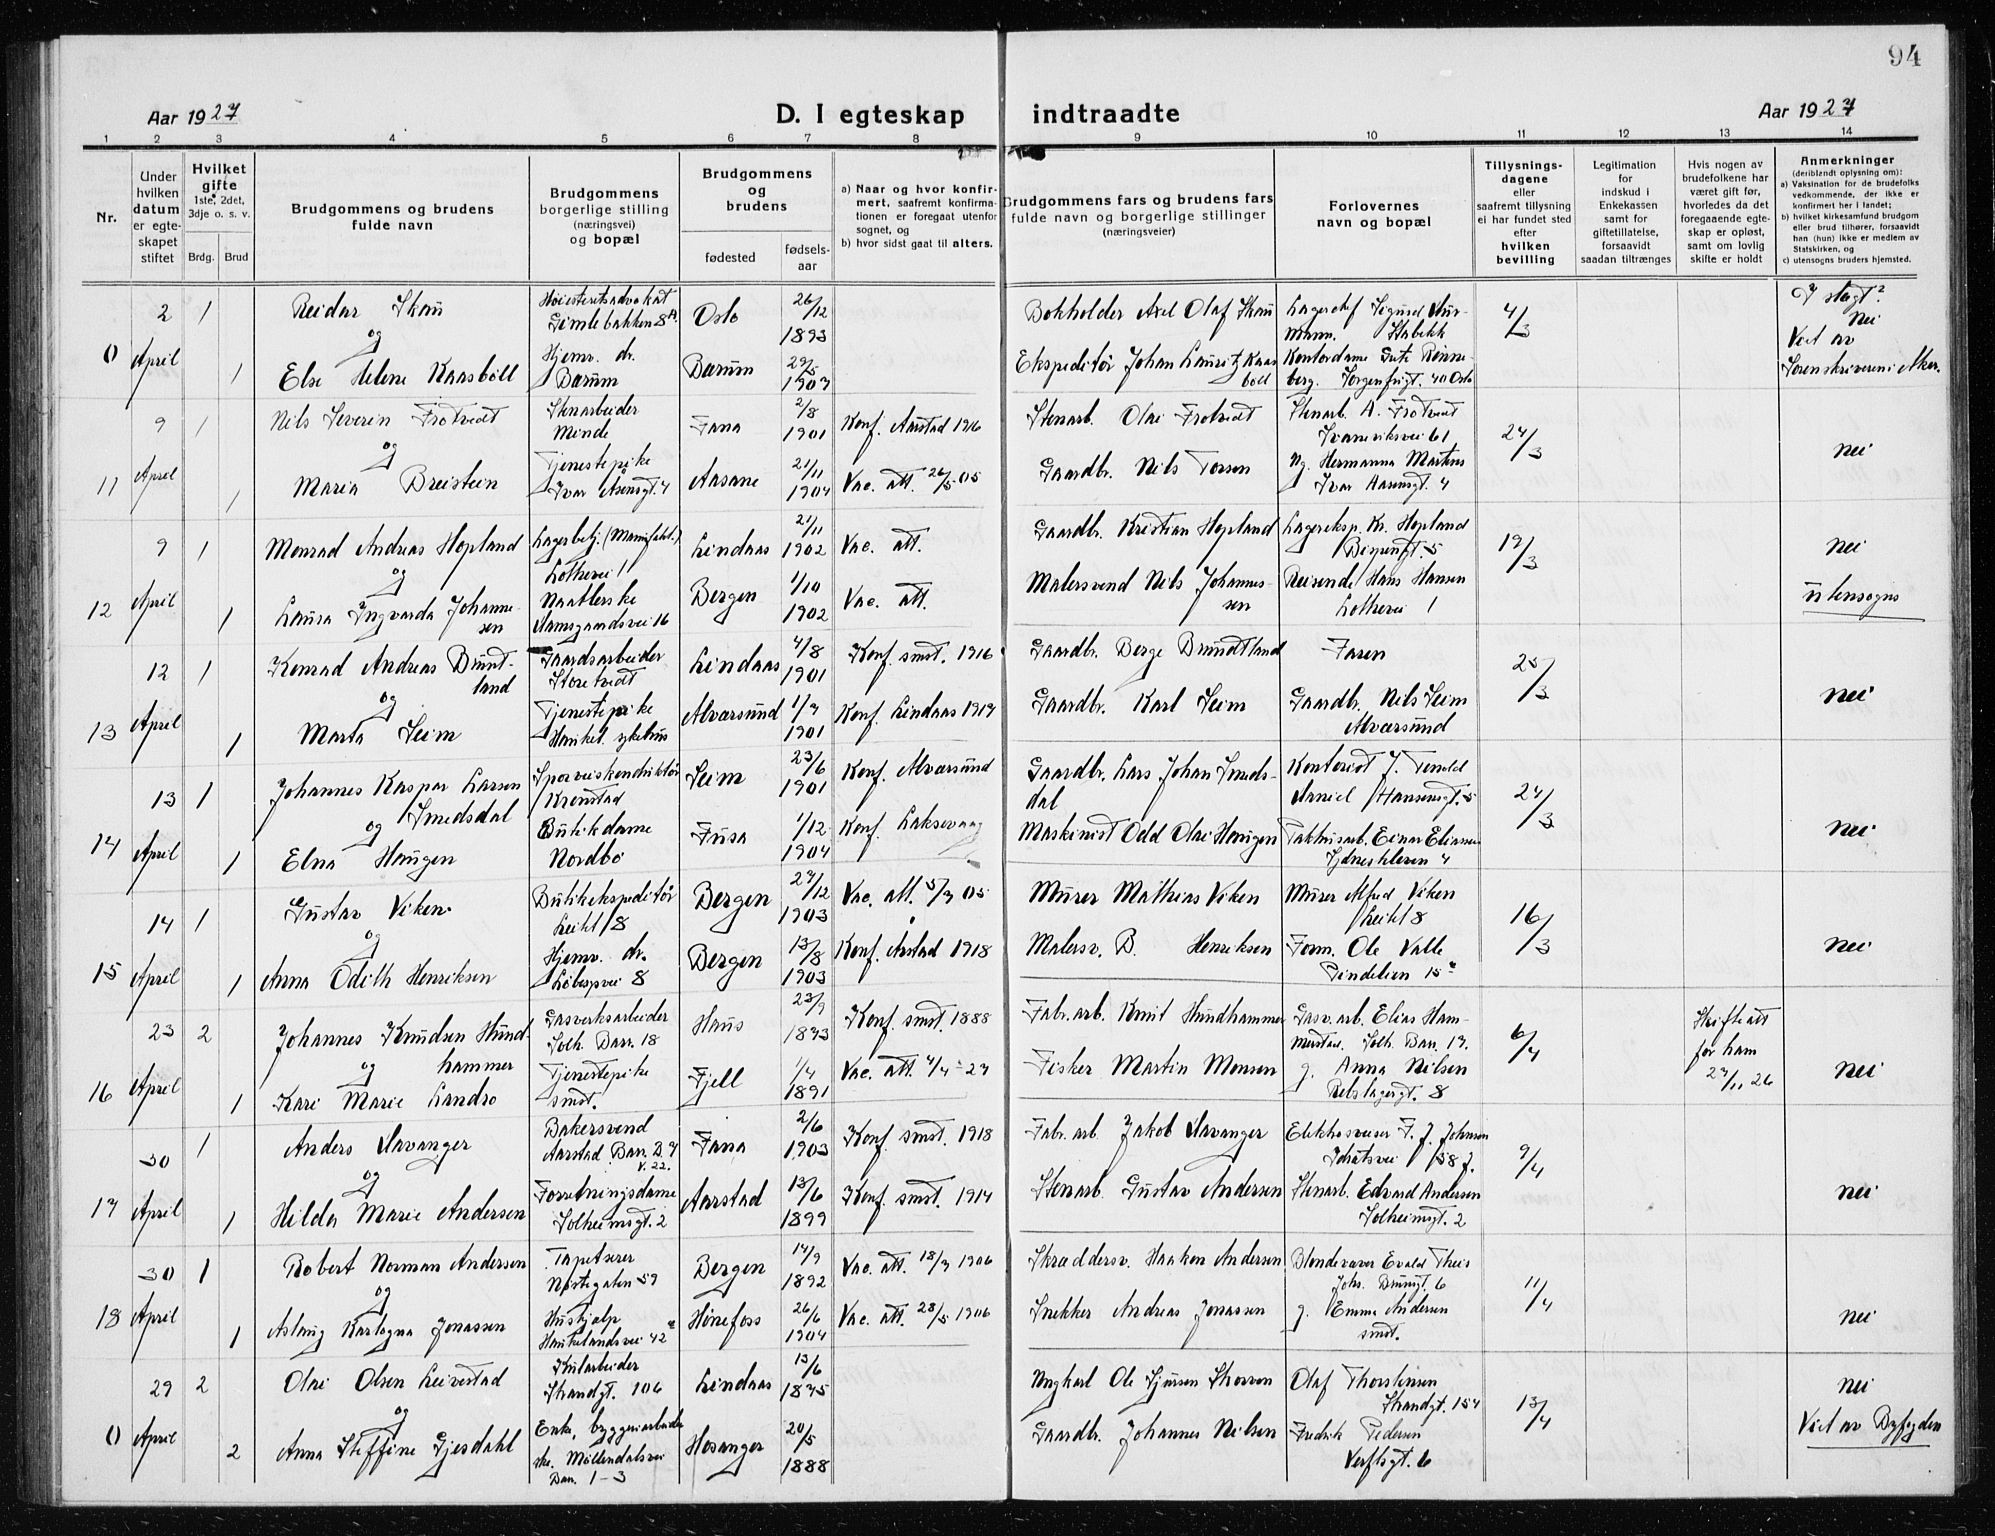 94
Aar 1927
D. I egteskap indtraadte
Aar 1927
1 2 3 4 5 6 7 8 9 10 11 12 13 14
Nr.
Under hvilken datum er egteskapet stiftet
Hvilket gifte
1ste, 2det, 3dje o. s. v.
Brdg. Brud
Brudgommens og brudens fulde navn
Brudgommens borgerlige stilling (næringsvei) og bopæl
Brudgommens og brudens
fødested
fødsels-aar
a) Naar og hvor konfirmert, saafremt konfirmationen er foregaat utenfor sognet, og
b) hvor sidst gaat til alters.
Brudgommens fars og brudens fars fulde navn og borgerlige stillinger (næringsveier)
Forlovernes navn og bopæl
Tillysningsdagene eller saafremt tillysning ei har fundet sted efter hvilken bevilling
Legitimation for indskud i Enkekassen samt for giftetillatelse, forsaavidt saadan tiltrænges
Hvis nogen av brudefolkene har været gift før, hvorledes da det foregaaende egteskap er opløst, samt om lovlig skifte er holdt
Anmerkninger
(deriblandt oplysning om):
a) Vaksination for de brudefolks vedkommende, der ikke er konfirmert her i landet;
b) hvilket kirkesamfund brudgom eller brud tilhører, forsaavidt han (hun) ikke er medlem av Statskirken, og
c) utensogns bruders hjemsted.
0 2 April 1 Reidar Skau Høiesteretsadvokat Gimlebakken 8 Oslo 26/12 1893 Bokholder Axel Olaf Skau Lagerchef Sigurd Stabekk 4/3 I slegt? Nei
og
1 Else Helene Kaasbøll Hjemv. dr. Bærum Bærum 29/5 1903 Ekspeditør Johan Lauritz Kaasbøll Kontordame Rønneberg. Jørgenfrigt. 40 Oslo Viet av Sorenskriveren i Aker.
11 9 April 1 Nils Severin Frotvedt Stenarbeider Minde Fana 2/8 1901 Konf. Aarstad 1916 Stenarb. Olai Frotvedt Stenarb. A. Frotvedt Ivarsviksvei 61 24/3 nei
og
1 Maria Breistein Tjenestepike Ivar Aasensgt. 4 Aasane 21/11 1904 Vac. att. 26/5 05 Gaardbr. Nils Torsen Hermanna Martens Ivar Aasensgt. 4
12 9 April 1 Monrad Andreas Hopland Lagerbetj. (Manufakt.) Lothevei 1 Lindaas 21/11 1902 Vac. att. Gaardbr. Kristian Hopland Lagereksp. Kr. Hopland 19/3 nei
og
1 Laura Ingvarda Johannesen Naatlerske Damsgaardsvei 16 Bergen 1/10 1902 Vac. att. Malersvend Nils Johannessen Reisende Hans Hansen Lothevei 1 utensogns
13 12 April 1 Konrad Andreas Brundtland Gaardsarbeider Storetvedt Lindaas 4/8 1901 Konf. smst. 1916 Gaardbr. Berge Brundtland Faren 25/3 nei
og
1 Marta Seim Tjenestepike Haukel. sykehus Alværsund 1/9 1901 Konf. Lindaas 1917 Gaardbr. Karl Seim Gaardbr. Nils Seim Alværsund
14 13 April 1 Johannes Kaspar Larsen Smedsdal Sporveiskonduktør Kronstad Seim 23/6 1901 Konf. Alværsund Gaardbr. Lars Johan Smedsdal Kontorist J. Tendd Daniel Hansensgt. 5 24/3 nei
og
1 Elna Haugen Butikdame Nordbø Fusa 1/12 1904 Konf. Laksevaag Maskinist Odd Olai Haugen Pakhusarb. Einar Eliassen 4
15 14 April 1 Gustav Viken Butikekspeditør Leitet 8 Bergen 27/12 1903 Vac. att. 5/7 05 Murer Mathias Viken Murer Alfred Viken Leitet 8 16/3 nei
og
1 Anna Odith Henriksen Hjemv. dr. Løbergsvei 8 Bergen 13/8 1903 Konf. Aarstad 1918 Malersv. B. Henriksen Form. Ole Valle 15
16 23 April 2 Johannes Knudsen Hundhammer Gasverksarbeider Solh. Bar. 18 Haus 23/9 1873 Konf. smst. 1888 Fabr. arb. Knut Hundhammer Gasv. arb. Elias Solh. Bar. 17. 6/4 Skifteatt for ham 27/11 26 nei
og
1 Kari Marie Landro Tjenestepike smst. Fjell 1/4 1891 Vac. att. 4/4 - 27 Fisker Martin Monsen g. Anna Nilsen Rebslagergt. 8
17 30 April 1 Anders Savanger Bakersvend Aarstad Bar. B. 7 V. 22. Fana 2/6 1903 Konf. smst. 1918 Fabr. arb. Jakob Savanger J. Johnsen Idrætsvei 58 J. 9/4 nei
og
1 Hilda Marie Andersen Forretningsdame Solheimsgt. 2 Aarstad 13/6 1899 Konf. smst. 1914 Stenarb. Gustav Andersen Stenarb. Edvard Andersen Solheimsgt. 2
18 30 April 1 Robert Norman Andersen Tapetserer Nøstegaten 59 Bergen 14/9 1892 Vac. att. 18/7 1906 Skræddersv. Haakon Andersen Blondevæver Evald Theis Johs. Brunsgt. 6 11/4 nei
og
1 Aslaug Karlogna Jonassen Hushjelp Haukelandsvei 42 Hønefoss 26/6 1904 Vac. att. 28/5 1906 Snekker Andreas Jonassen g. Emma Andersen smst.
0 29 April 2 Olai Olsen Leivestad Kularbeider Strandgt. 106 Lindaas 13/6 1875 Ungkarl Ole Sjursen Olaf Thorstensen Strandgt. 154 13/4 nei
og
2 Anna Steffine Gjesdahl Enke, bryggeriarbeiderske. Møllendalsvei Bar. 1-3 Hosanger 20/5 1888 Gaardbr. Johannes Nielsen Fredrik Pedersen Verftsgt. 6 Viet av Byfogden